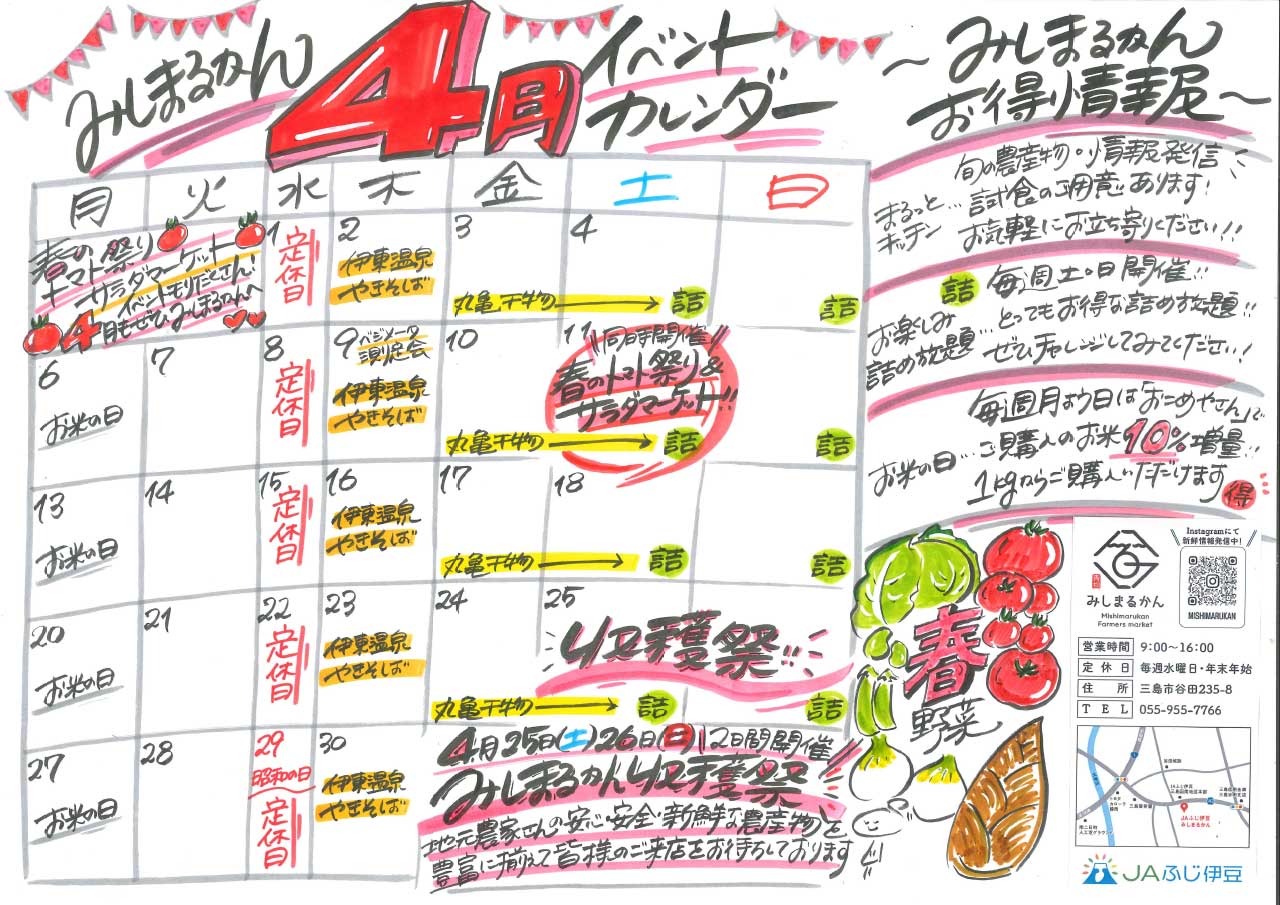 みしまるかん 4月 イベント
カレンダー
月 火 水 木 金 土 日
春の
トマト祭り
サラダマーケット
イベントモリだくさん!
4月もぜひみしまるかんへ
1 定休日
2 伊東温泉
やきそば
3
4
丸亀干物 詰 詰
6 お米の日
7
8 定休日
9 ベジメータ
測定会
伊東温泉
やきそば
10
11 同時開催
春のトマト祭り&
サラダマーケット!!
丸亀干物 詰 詰
13 お米の日
14
15 定休日
16 伊東温泉
やきそば
17
18
丸亀干物 詰 詰
20 お米の日
21
22 定休日
23 伊東温泉
やきそば
24
25
収穫祭!!
丸亀干物 詰 詰
27 お米の日
28
29 昭和の日
定休日
30 伊東温泉
やきそば
4月25日(土)26日(日)2日間開催
みしまるかん収穫祭
地元農家さんの安心・安全・新鮮な農産物を
豊富に揃えて皆様のご来店をお待ちしております
〜みしまるかん
お得り情報〜
まるっと
キッチン…
旬の農産物・情報発信
試食のご用意あります!
お気軽にお立ち寄りください!!
お楽しみ
詰め放題…
詰 毎週土・日開催!!
とってもお得な詰め放題!!
ぜひチャレンジしてみてください!
お米の日…
毎週月よう日は「おこめやさん」で
ご購入のお米10%増量!!
1kgからご購入いただけます 得
春
野菜
みしまるかん
Mishimarukan
Farmers market
Instagramにて
新鮮情報発信中!
MISHIMARUKAN
営業時間 9:00〜16:00
定休日 毎週水曜日・年末年始
住所 三島市谷田235-8
TEL 055-955-7766
JAふじ伊豆
みしまるかん
JAふじ伊豆